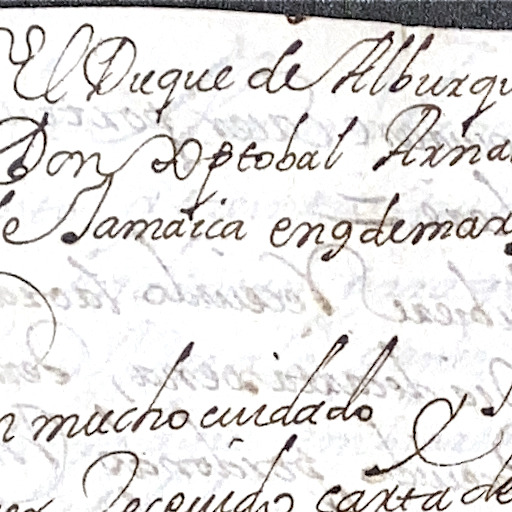 El Duque de Alburqu
Don Xptobal Arna
de Jamaica en 9 de mar
n mucho cuidado y
Receuido carta de